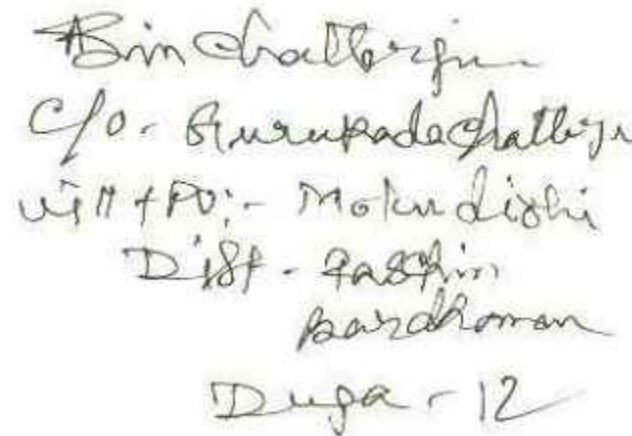 Bin Chatterjee
C/O - Gurupada Chatterje
Vill + PO:- Mokundishi
Dist - Paschim
Bardhaman
Duga - 12